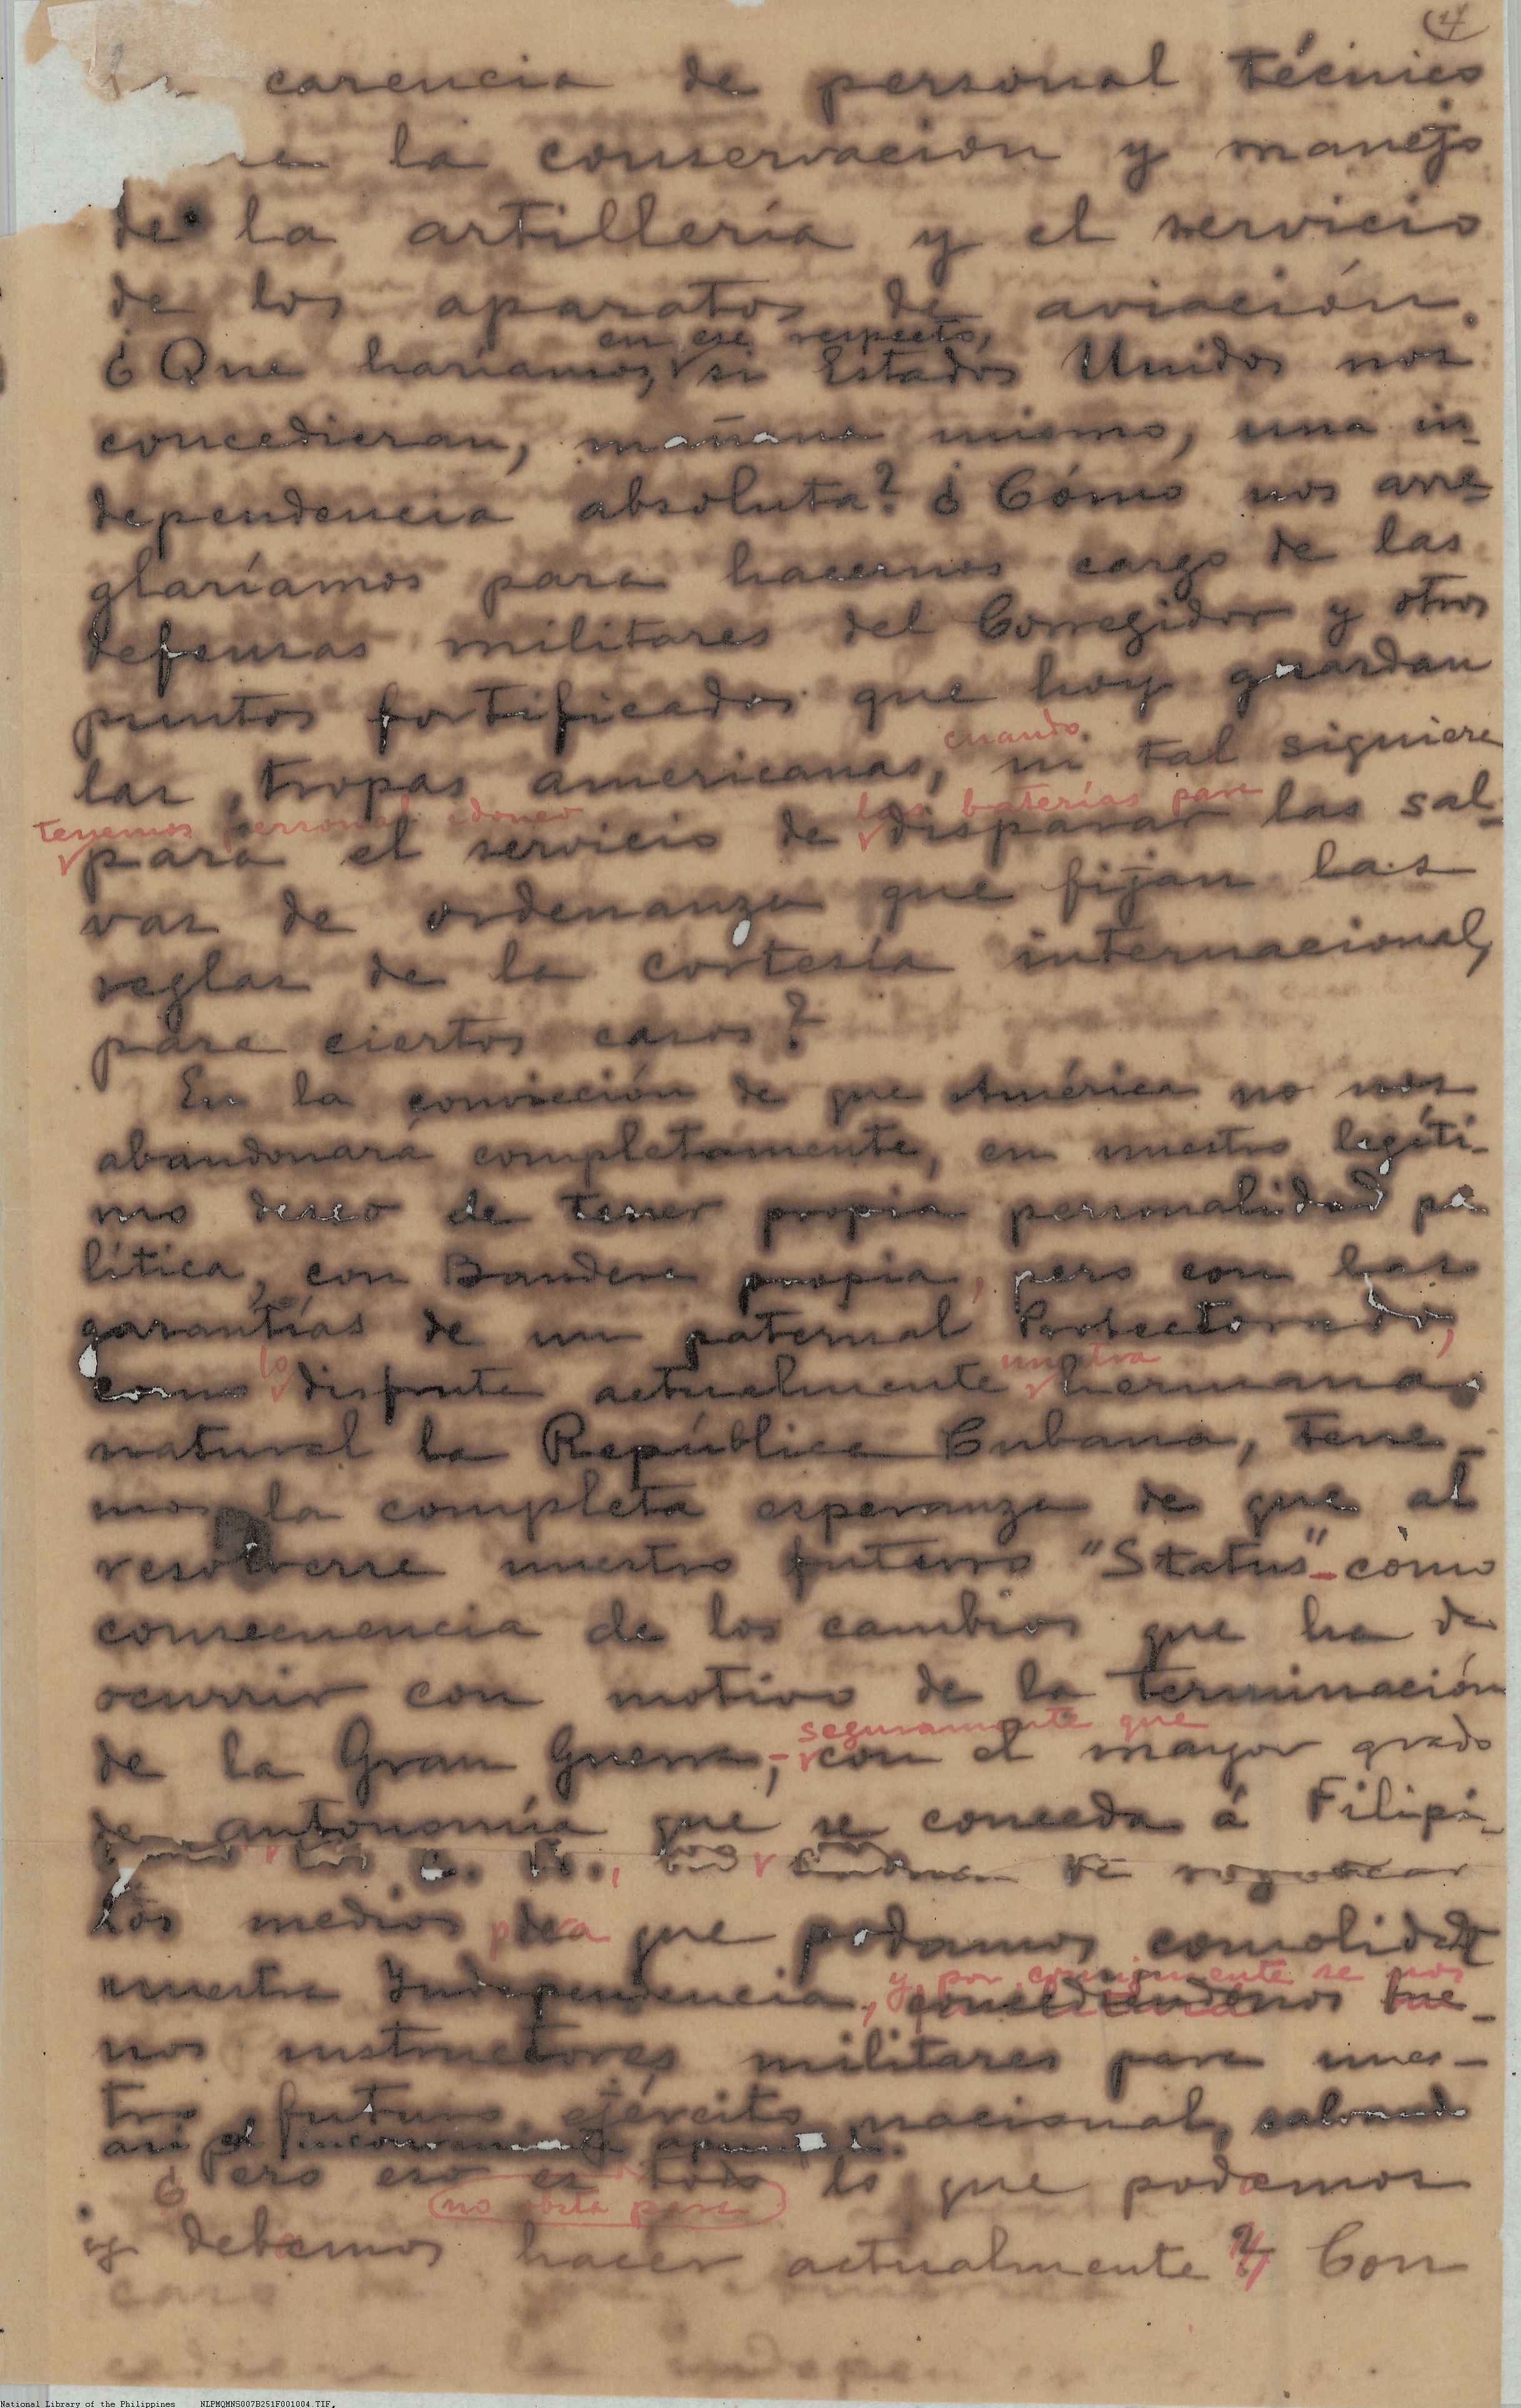 (4
carencia de personal técnico
la conservación y manejo
de la artillería y el servicio
de los aparatos de aviación.
en ese respecto,
¿Que haríamos, si Estados Unidos nos
concedieran, mañana mismo, una in-
dependencia absoluta? ¿Cómo nos arre-
glaríamos para hacernos cargo de las
defensas militares del Corregidor y otros
puntos fortificados que hoy guardan
cuando
las tropas americanas, ni tal siquiera
tenemos personal idoneo las baterías para
para el servicio de disparar las sal-
vas de ordenanza que fijan las
reglas de la cortesía internacional,
para ciertos casos?
En la convicción de que América no nos
abandonará completamente, en nuestro legíti-
mo deseo de tener propia personalidad po
lítica, con Bandera propia, pero con las
garantías de un paternal Protectorado,
lo nuestra
como disfruta actualmente hermana
natural la República Cubana, tene-
mos la completa esperanza de que al
resolverse nuestro futuro "Status"-como
consecuencia de los cambios que ha de
ocurrir con motivo de la terminación
seguramente que
de la Gran Guerra,- con el mayor grado
de autonomía que se conceda á Filipi-
los E. U.,
los medios para que podamos consolidar
y, por consiguiente se nos
nuestra Independencia, concediendonos bue-
nos instructores militares para nues-
tro futuro ejército nacional, salvando
así el inconveniente
¿Pero eso es todo lo que podemos
no obsta para
y debemos hacer actualmente? Con
National Library of the Philippines NLPMQMNS007B251F001004.TIF.